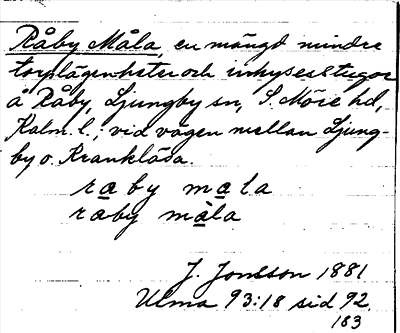 Råby Måla, en mängd mindre
torplägenheter och inhysesstugor
å Råby, Ljungby sn, S. Möre hd,
Kalm. l.; vid vägen mellan Ljung-
by o. Krankelösa.
råby måla
råby måla
J. Jonsson 1881
Ulma 93:18 sid 92.
183